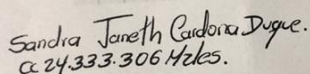 Sandra Janeth Cardona Duque.
CC 24.333.306 Mzles.